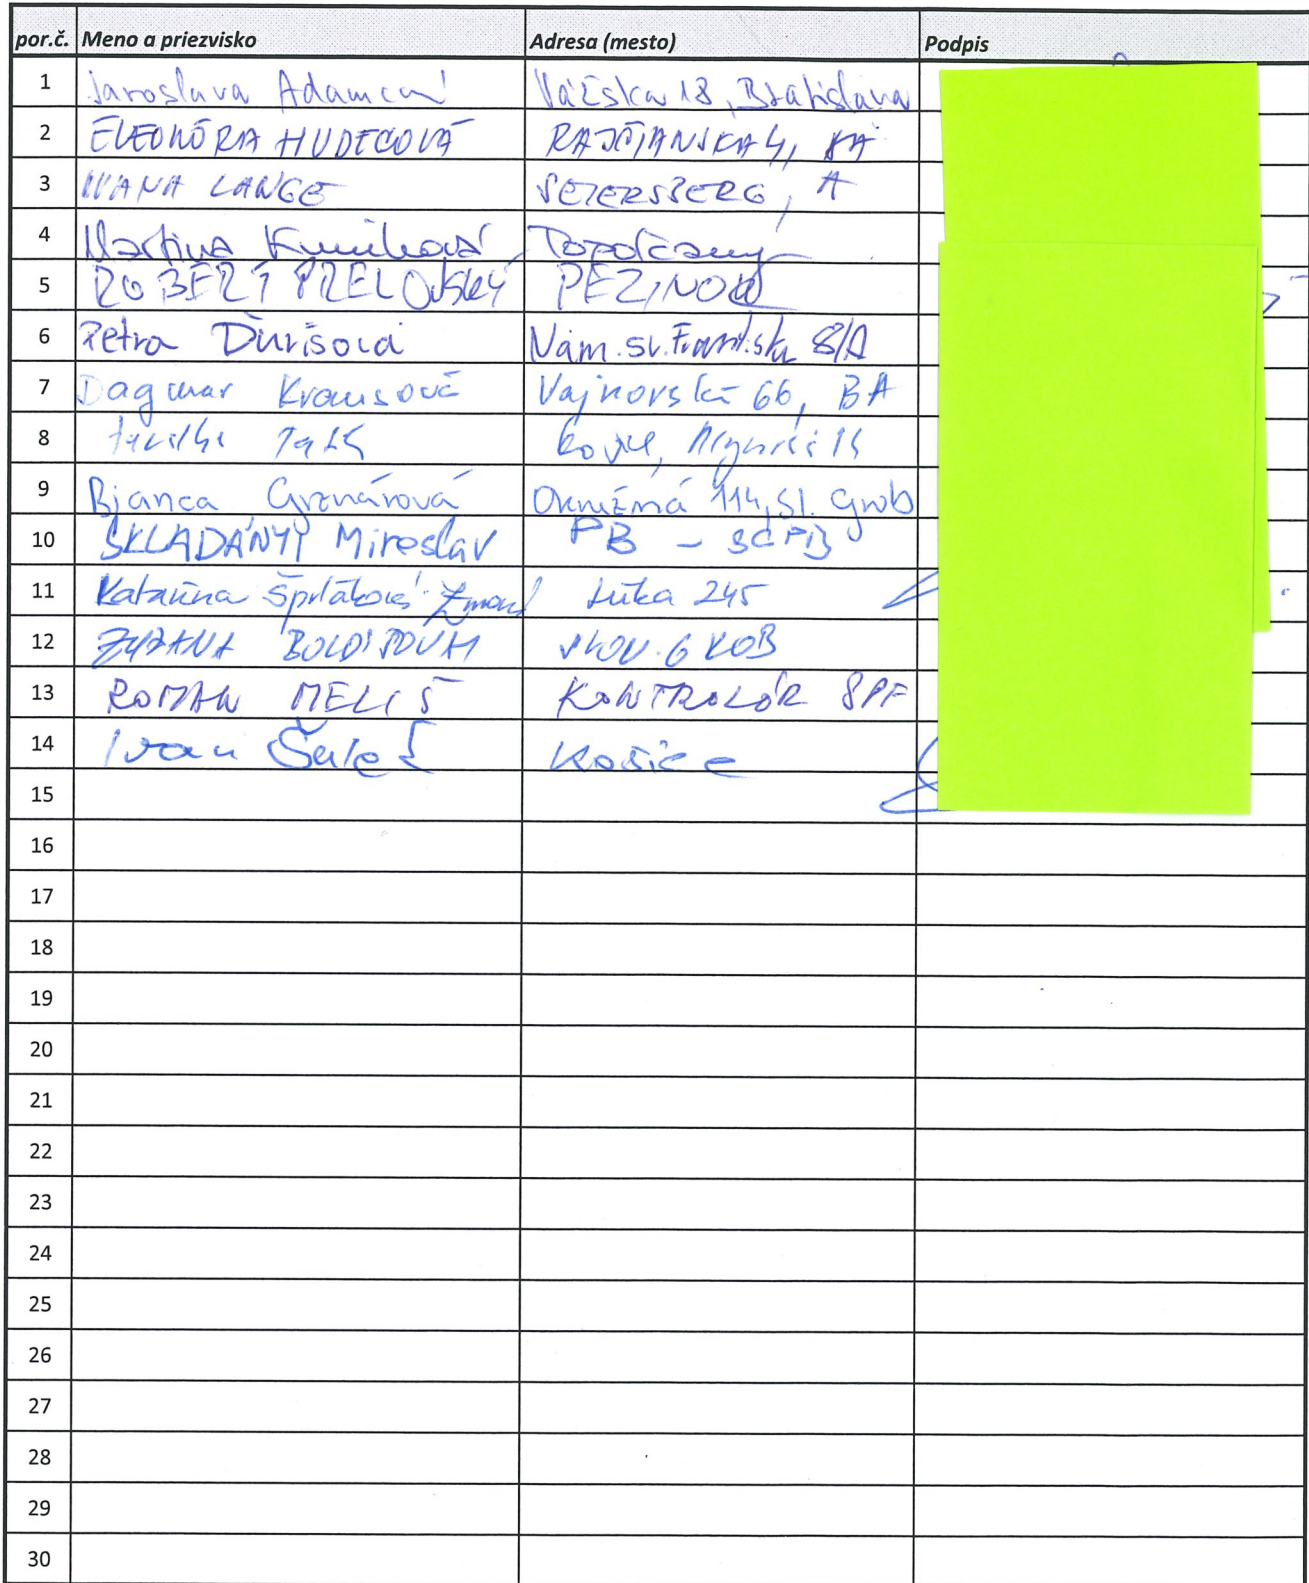 por.č. Meno a priezvisko Adresa (mesto) Podpis
1 Jaroslava 18, Bratislava
2 ELEONÓRA HUDECOVÁ 4, BA
3 IVANA LANGE A
4 Martina Topoľčany
5 ROBERT PRELOVSKÝ PEZINOK
6 Petra Ďurišová Nám. sv. Františka 8/A
7 Dagmar Krausová Vajnorská 66, BA
8
9 Bianca Grznárová Okružná 114, Sl. Grob
10 SKLADANÝ Miroslav PB - SCPB
11 Katarína Lúka 245
12 ZUZANA SLOV. GROB
13 ROMAN MELIŠ KONTROLÓR SPF
14 Ivan Košice
15
16
17
18
19
20
21
22
23
24
25
26
27
28
29
30